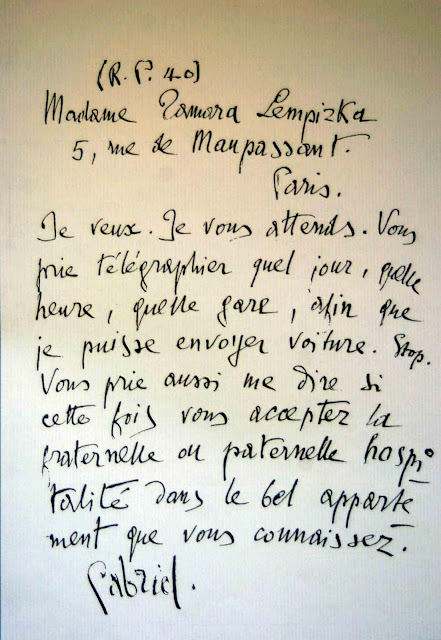 (R. P. 40)
Madame Tamara Lempizka
5, rue de Maupassant.
Paris.
Je veux. Je vous attends. Vous
prie télégraphier quel jour, quelle
heure, quelle gare, afin que
je puisse envoyer voiture. Stop.
Vous prie aussi me dire si
cette fois vous acceptez la
fraternelle ou paternelle hospi
talité dans le bel apparte
ment que vous connaissez.
Gabriel.